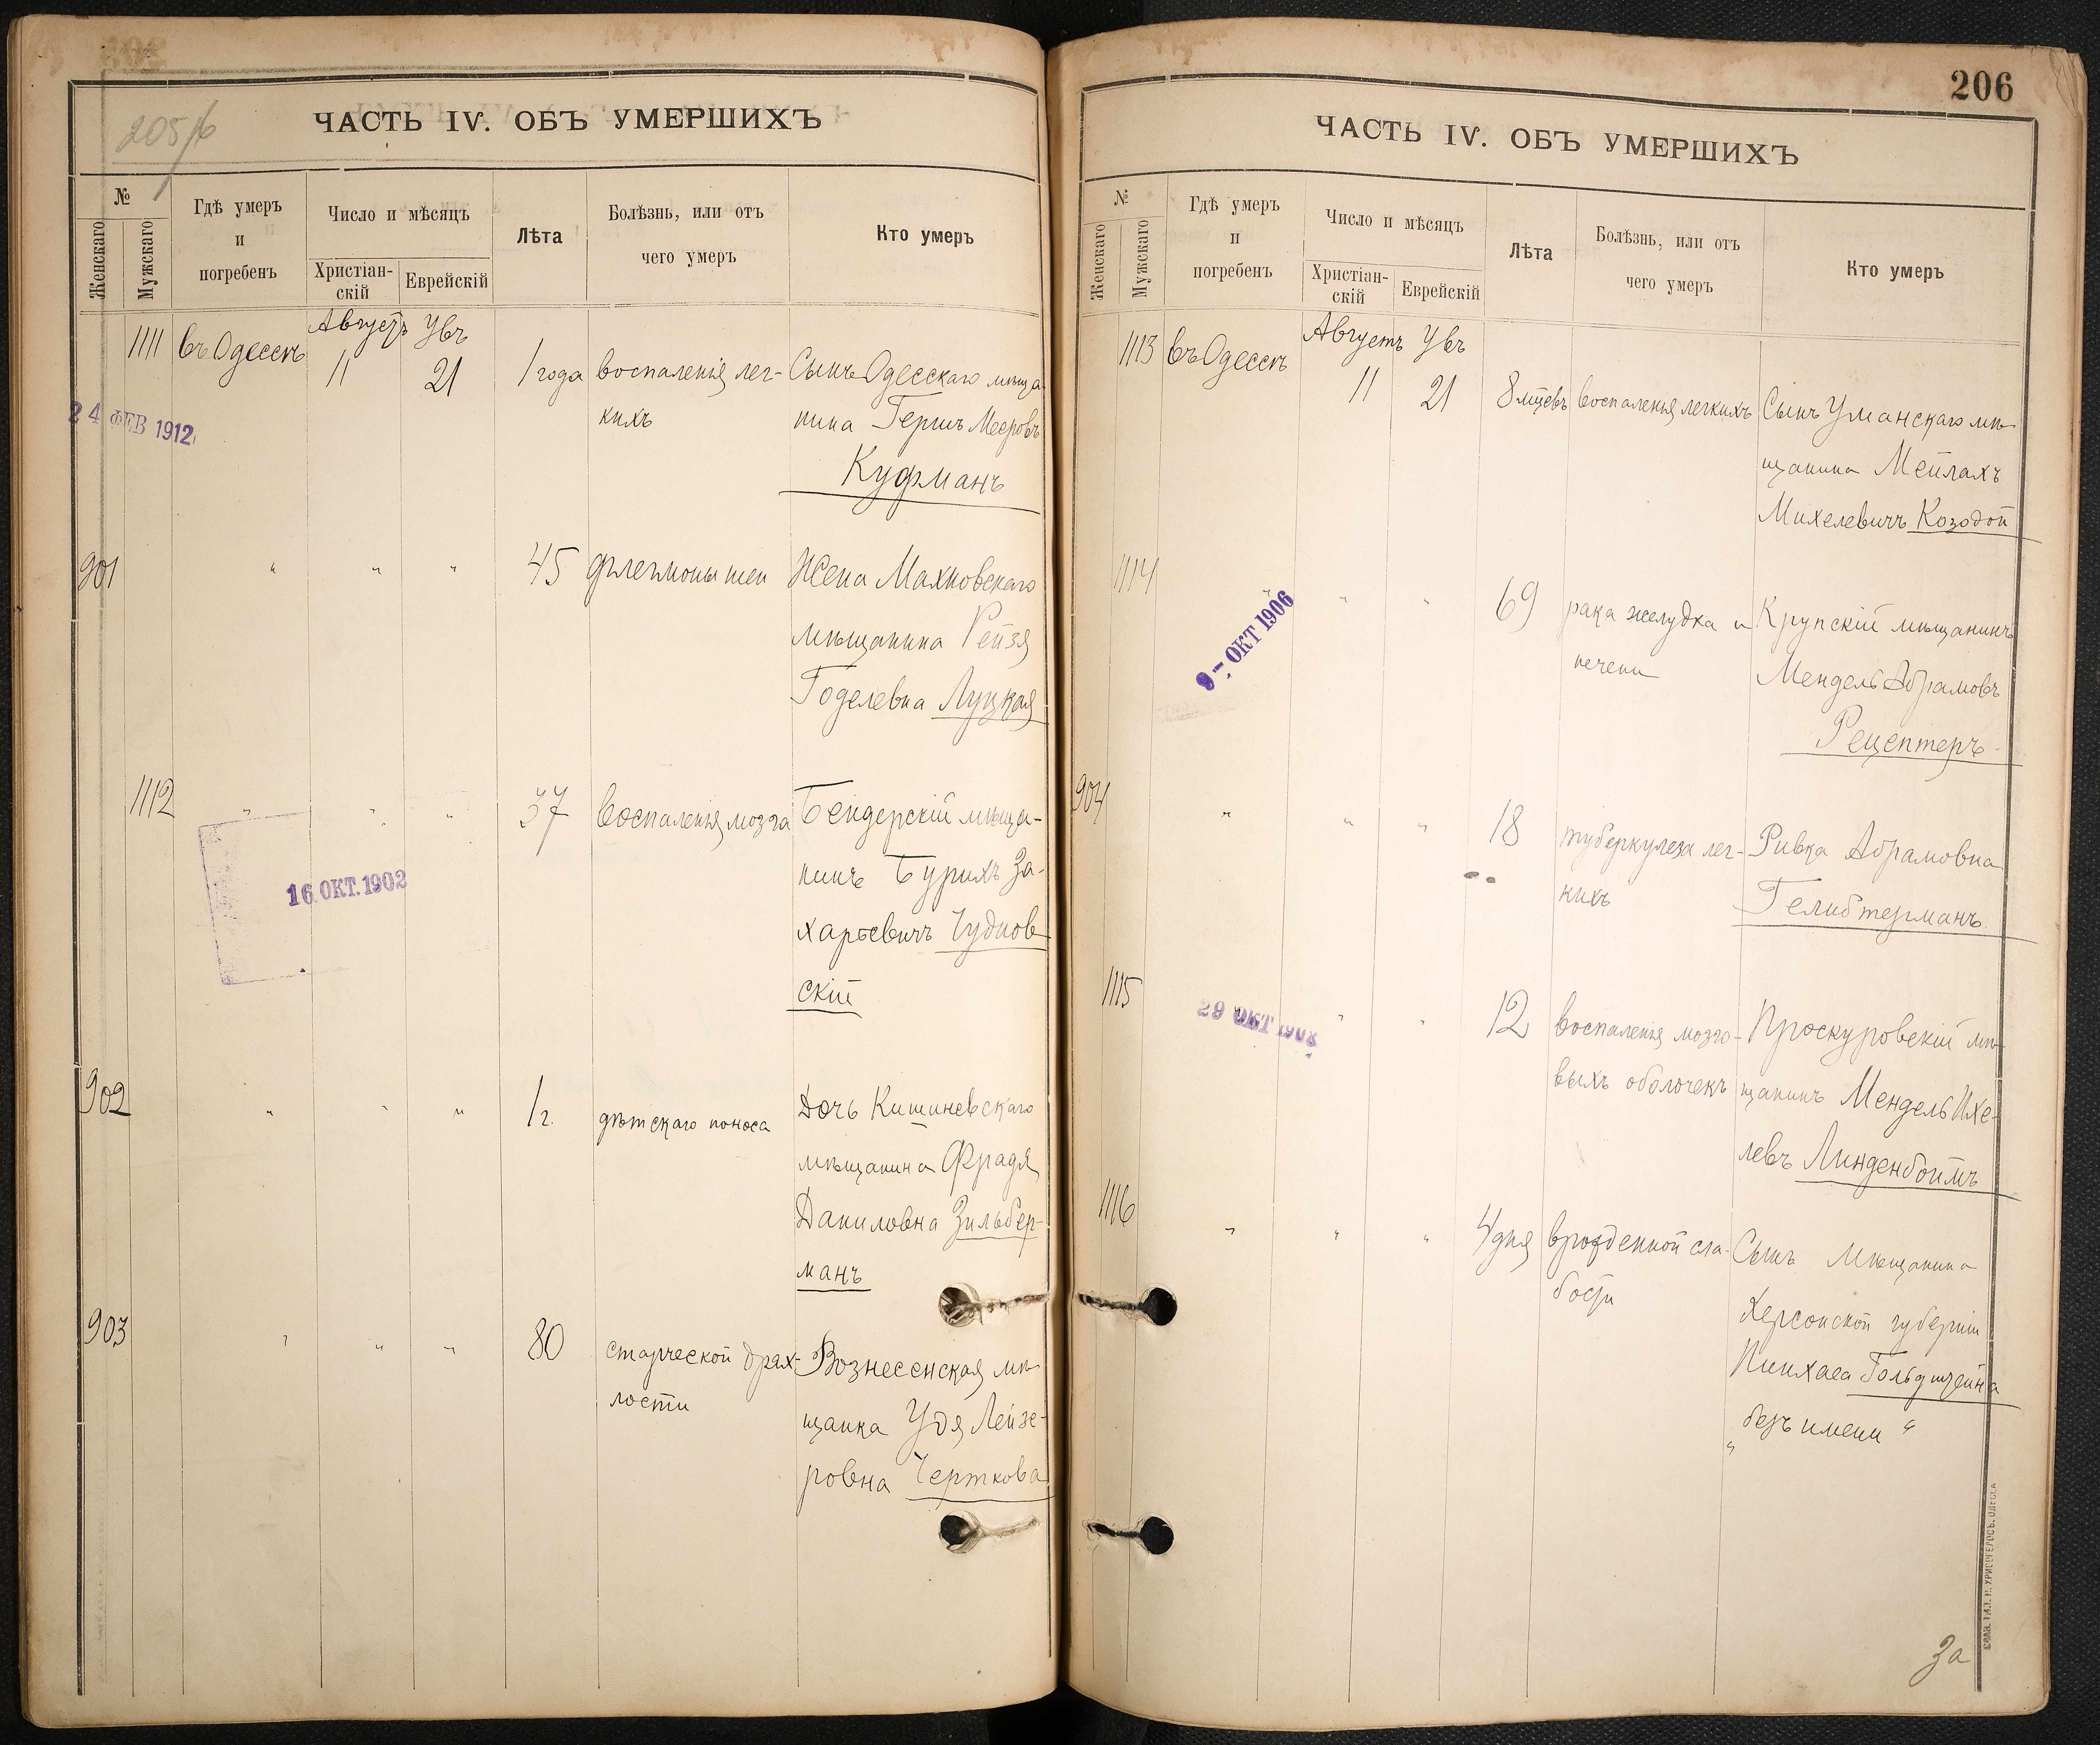 205/б
ЧАСТЬ IV. ОБЪ УМЕРШИХЪ
№
Женскаго
Мужскаго
Гдѣ умеръ
и
погребенъ
Число и мѣсяцъ
Христіан-
скій
Еврейскій
Лѣта
Болѣзнь, или отъ
чего умеръ
Кто умеръ
1111 въ Одессѣ Августъ 11 Увъ 21 1 года воспаленія лег- Сынъ Одесскаго мѣща-
кихъ нина Гершъ Мееровъ
Куфманъ
24 ФЕВ 1912
901 " " " 45 флегмоны шеи Жена Махновскаго
мѣщанина Рейзя
Годелевна Луцкая
1112 " " " 37 воспаленія мозга Бендерскій мѣща-
нинъ Бурихъ За-
харьевичъ Чуднов
скій
16. ОКТ. 1902
902 " " " 1 г. дѣтскаго поноса Дочь Кишиневскаго
мѣщанина Фрадя
Даниловна Зильбер-
манъ
903 " " " 80 старческой дрях- Вознесенская мѣ-
лости щанка Удя Лейзе-
ровна Черткова
206
ЧАСТЬ IV. ОБЪ УМЕРШИХЪ
№
Женскаго
Мужскаго
Гдѣ умеръ
и
погребенъ
Число и мѣсяцъ
Христіан-
скій
Еврейскій
Лѣта
Болѣзнь, или отъ
чего умеръ
Кто умеръ
1113 въ Одессѣ Августъ 11 Увъ 21 8 мцевъ воспаленія легкихъ Сынъ Уманскаго мѣ-
щанина Мейлахъ
Михелевичъ Козодой
1114 " " " 69 рака желудка и Крупскій мѣщанинъ
печени Мендель Абрамовъ
Рецептеръ
9- ОКТ 1906
904 " " " 18 туберкулеза лег- Ривка Абрамовна
кихъ Гелибтерманъ
1115 " " " 12 воспаленія мозго- Проскуровскій мѣ-
выхъ оболочекъ щанинъ Мендель Ихе-
левъ Линденбоймъ
29 ОКТ 1902
1116 " " " 4 дня врожденной сла- Сынъ мѣщанина
бости Херсонской губерніи
Пинхаса Гольдштейна
"безъ имени"
За